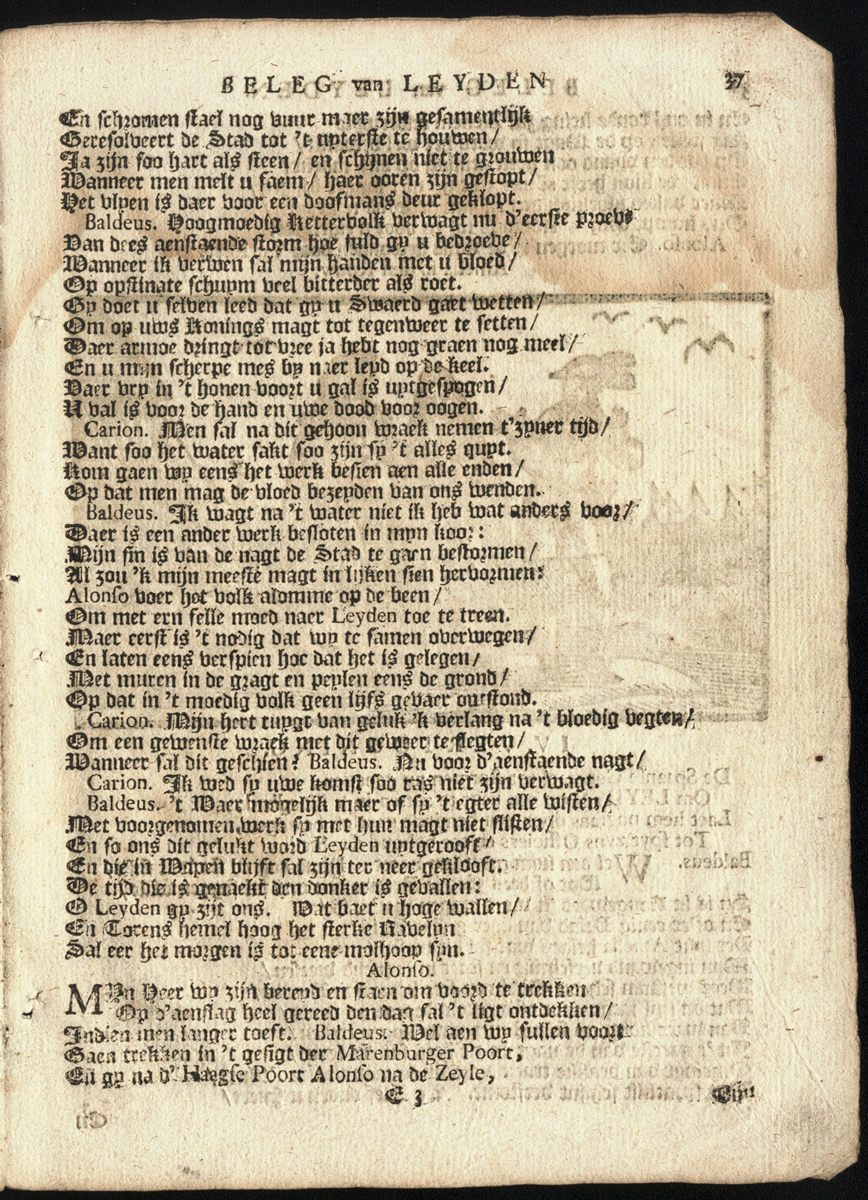 BELEG van LEYDEN 37
En schromen stael nog vuur maer zijn gesamentlijk
Geresolveert de Stad tot 't uyterste te houwen/
Ja zijn soo hart als steen/ en schijnen niet te grouwen
Wanneer men melt u faem/ haer ooren zijn gestopt/
Het vlyen is daer voor een doofmans deur geklopt.
Baldeus. Hoogmoedig Kettervolk verwagt nu d'eerste proeve
Van dees aenstaende storm hoe suld gy u bedroeve/
Wanneer ik verwen sal mijn handen met u bloed/
Op opstinate schuym veel bitterder als roet.
Gy doet u selven leed dat gy u Swaerd gaet wetten/
Om op uws Konings magt tot tegenweer te setten/
Daer armoe dringt tot vree ja hebt nog graen nog meel/
En u mijn scherpe mes by naer leyd op de keel.
Vaer vry in 't honen voort u gal is uytgespogen/
U val is voor de hand en uwe dood voor oogen.
Carion. Men sal na dit gehoon wraek nemen t'zyner tijd/
Want soo het water sakt soo zijn sy 't alles quyt.
Kom gaen wy eens het werk besien aen alle enden/
Op dat men mag de vloed bezeyden van ons wenden.
Baldeus. Ik wagt na 't water niet ik heb wat anders voor/
Daer is een ander werk besloten in myn koor:
Mijn sin is van de nagt de Stad te gaen bestormen/
Al zou 'k mijn meeste magt in lijken sien hervormen:
Alonso voer het volk alomme op de been/
Om met ern felle moed naer Leyden toe te treen.
Maer eerst is 't nodig dat wy te samen overwegen/
En laten eens verspien hoe dat het is gelegen/
Met muren in de gragt en peylen eens de grond/
Op dat in 't moedig volk geen lijfs gevaer ontstond.
Carion. Mijn hert tuygt van geluk 'k verlang na 't bloedig vegten/
Om een gewenste wraek met dit geweer te slegten/
Wanneer sal dit geschien? Baldeus. Nu voor d'aenstaende nagt/
Carion. Ik wed sy uwe komst soo ras niet zijn verwagt.
Baldeus. 't Waer mogelijk maer of sy 't egter alle wisten/
Met voorgenomen werk sy met hun magt niet slisten/
En so ons dit gelukt word Leyden uytgerooft/
En die in Wapen blijft sal zijn ter neer geklooft.
De tijd die is genaekt den donker is gevallen:
O Leyden gy zijt ons. Wat baet u hoge wallen/
En Torens hemel hoog het sterke Ravelyn
Sal eer het morgen is tot eene molhoop syn.
Alonso.
MYn Heer wy zijn bereyd en staen om voord te trekken
Op d'aenslag heel gereed den dag sal 't ligt ontdekken/
Indien men langer toeft. Baldeus. Wel aen wy sullen voort
Gaen trekken in 't gesigt der Marenburger Poort,
En gy na d' Haegse Poort Alonso na de Zeyle,
E 3